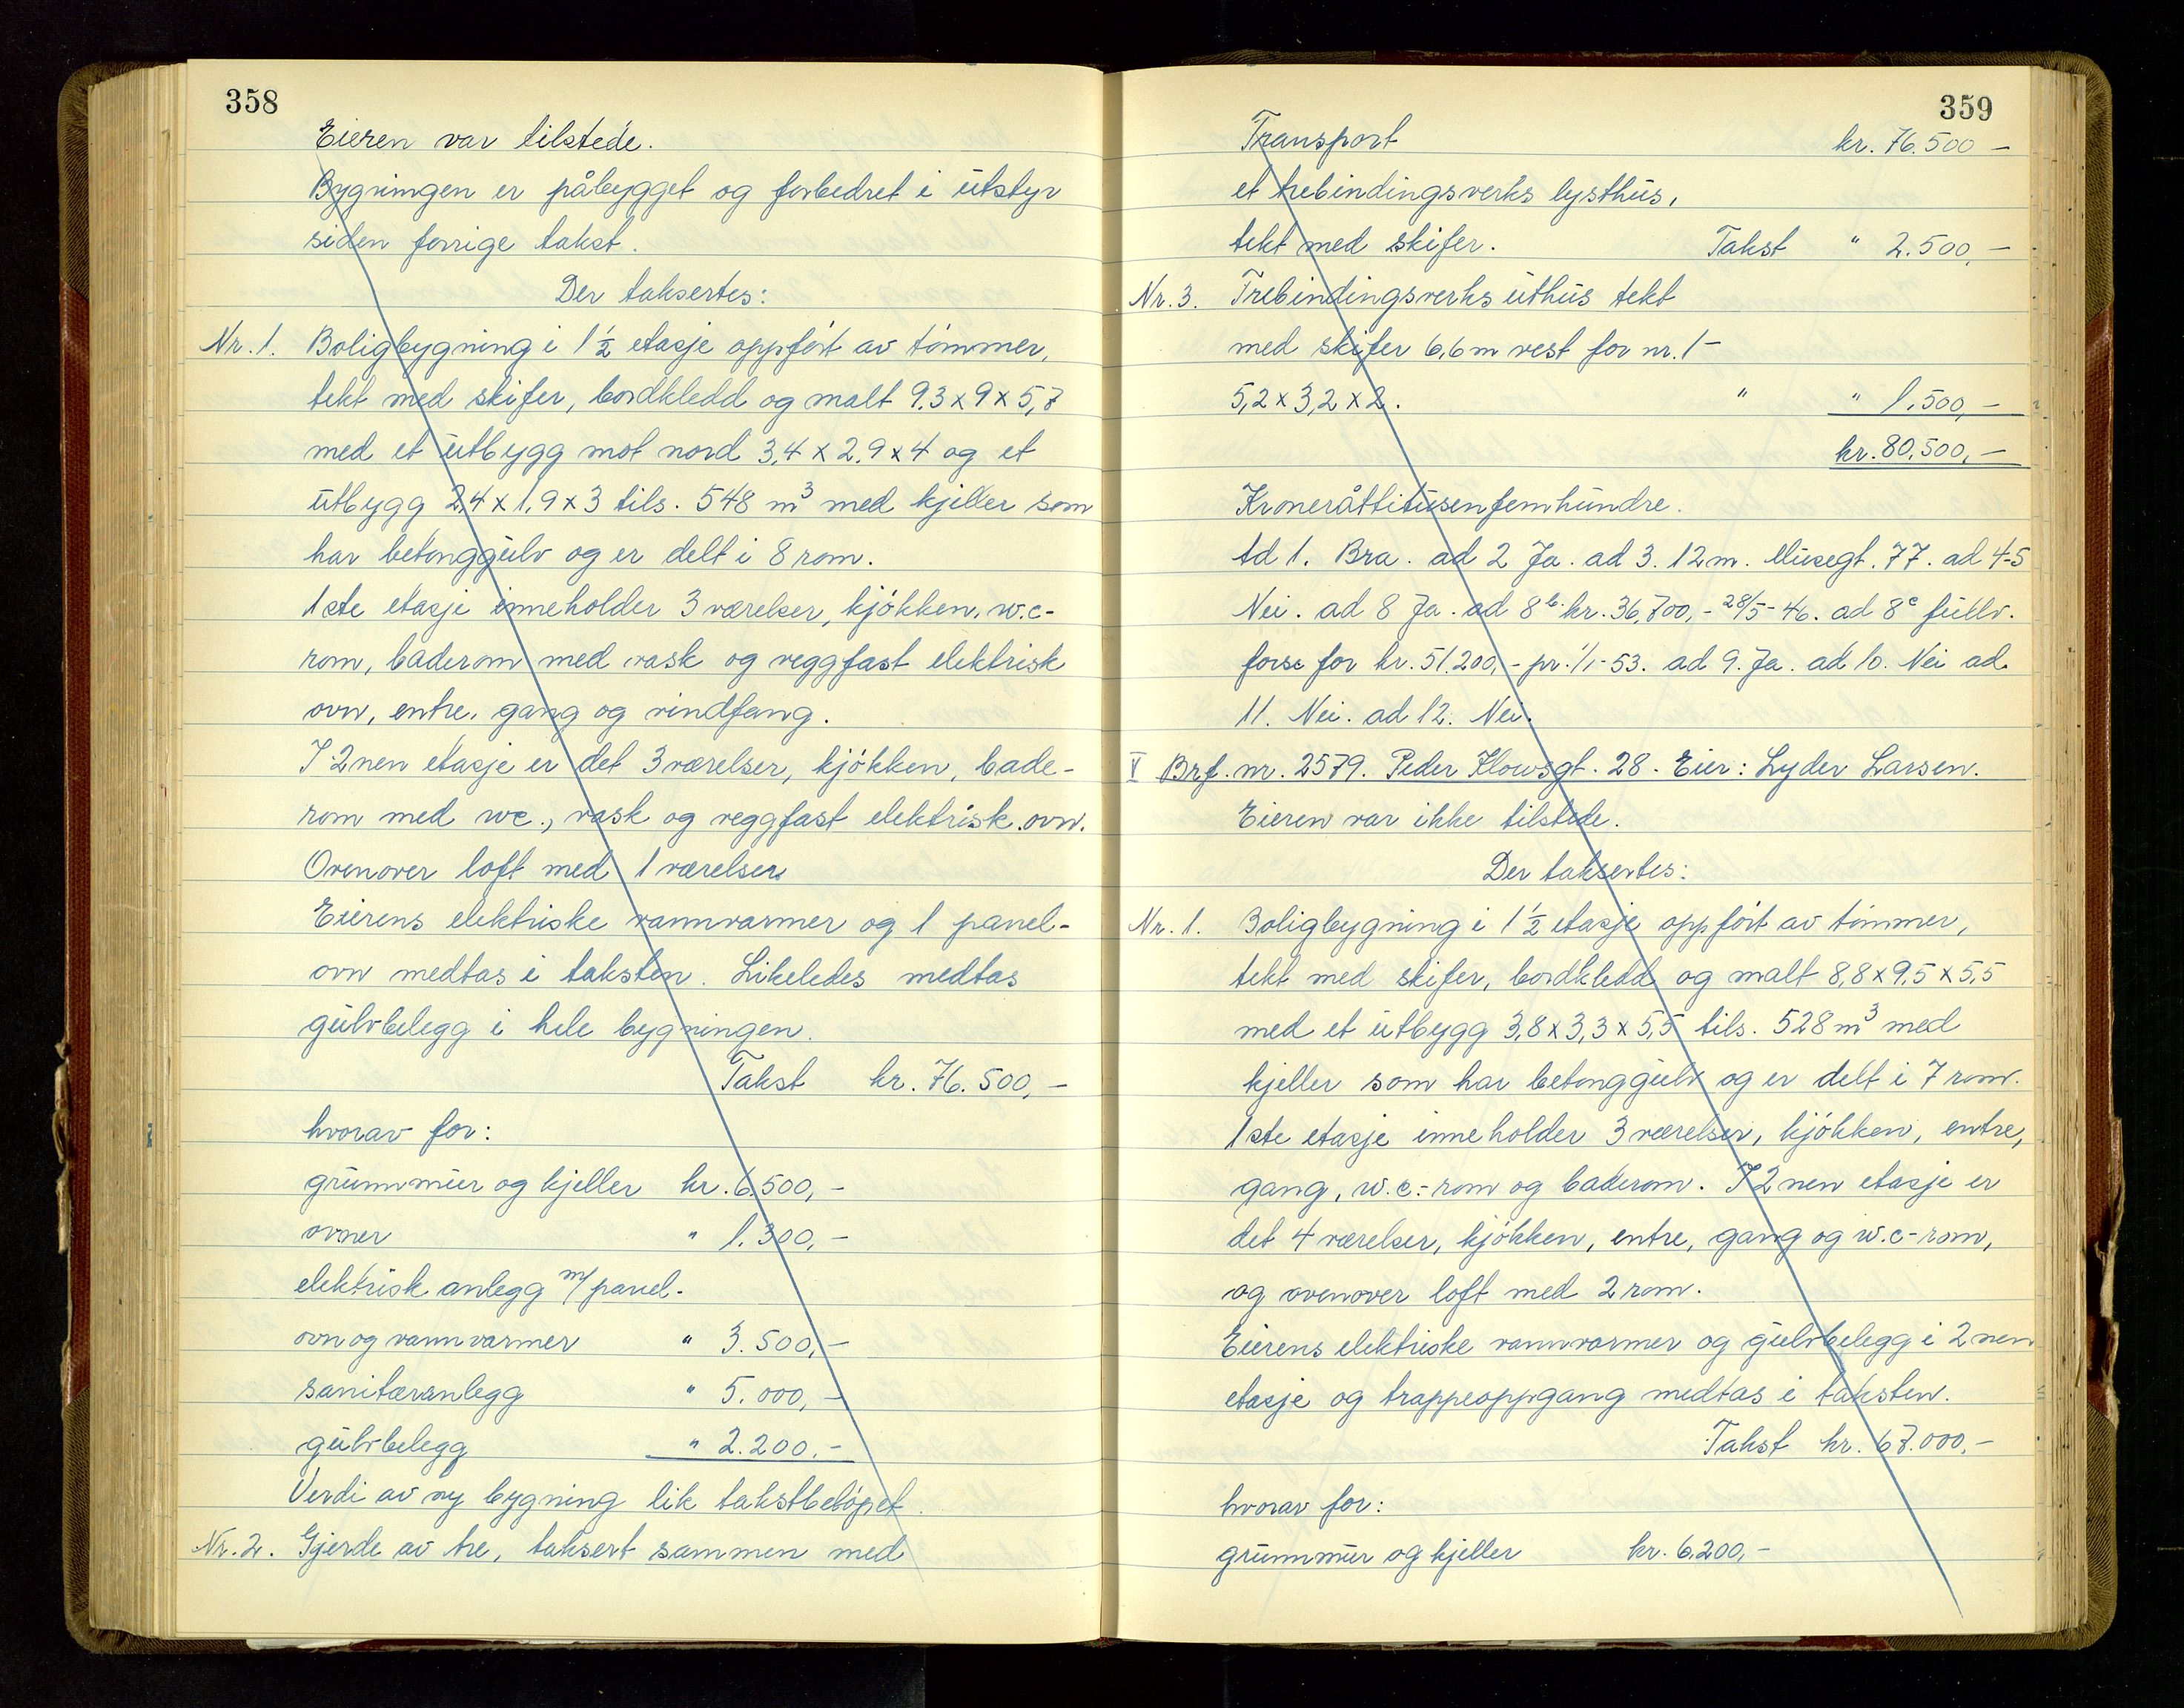 358
Eieren var tilstede.
Bygningen er påbygget og forbedret i utstyr
siden forrige takst.
Der taksertes:
Nr. 1. Boligbygning i 1½ etasje oppført av tømmer,
tekt med skifer, bordkledd og malt 9,3 x 9 x 5,7
med et utbygg mot nord 3,4 x 2,9 x 4 og et
utbygg 2,4 x 1,9 x 3 tils. 548 m³ med kjeller som
har betonggulv og er delt i 8 rom.
1ste etasje inneholder 3 værelser, kjøkken, w.c-
rom, baderom med vask og veggfast elektrisk
ovn, entre, gang og vindfang.
I 2nen etasje er det 3 værelser, kjøkken, bade-
rom med wc., vask og veggfast elektrisk ovn.
Ovenover loft med 1 værelser
Eierens elektriske vannvarmer og 1 panel-
ovn medtas i taksten. Likeledes medtas
gulvbelegg i hele bygningen.
Takst kr. 76.500,-
hvorav for:
grunnmur og kjeller kr. 6.500,-
ovner " 1.300,-
elektrisk anlegg m/ panel-
ovn og vannvarmer " 3.500,-
sanitæranlegg " 5.000,-
gulvbelegg " 2.200.-
Verdi av ny bygning lik takstbeløpet.
Nr. 2. Gjerde av tre, taksert sammen med
359
Transport kr. 76.500 -
et trebindingsverks lysthus,
tekt med skifer. Takst " 2.500,-
Nr. 3. Trebindingsverks uthus tekt
med skifer 6,6 m vest for nr. 1-
5,2 x 3,2 x 2. " " 1.500,-
kr. 80.500,-
Kroneråttitusenfemhundre.
Ad 1. Bra. ad 2 Ja. ad 3. 12 m. Musegt. 77. ad 4-5
Nei. ad 8 Ja. ad 8b. kr. 36,700,- 28/5-46. ad 8c fullv.
forse for kr. 51.200,- pr. 1/1-53. ad 9. Ja. ad 10. Nei ad
11. Nei. ad 12. Nei.
V Brf. nr. 2579. Peder Klowsgt. 28. Eier: Lyder Larsen.
Eieren var ikke tilstede.
Der taksertes:
Nr. 1. Boligbygning i 1½ etasje oppført av tømmer,
tekt med skifer, bordkledd og malt 8,8 x 9,5 x 5,5
med et utbygg 3,8 x 3,3 x 5,5 tils. 528 m³ med
kjeller som har betonggulv og er delt i 7 rom.
1ste etasje inneholder 3 værelser, kjøkken, entre,
gang, w.c.-rom og baderom. I 2nen etasje er
det 4 værelser, kjøkken, entre, gang og w.c-rom,
og ovenover loft med 2 rom.
Eierens elektriske vannvarmer og gulvbelegg i 2nen
etasje og trappeoppgang medtas i taksten.
Takst kr. 67.000,-
hvorav for:
grunnmur og kjeller kr. 6.200,-